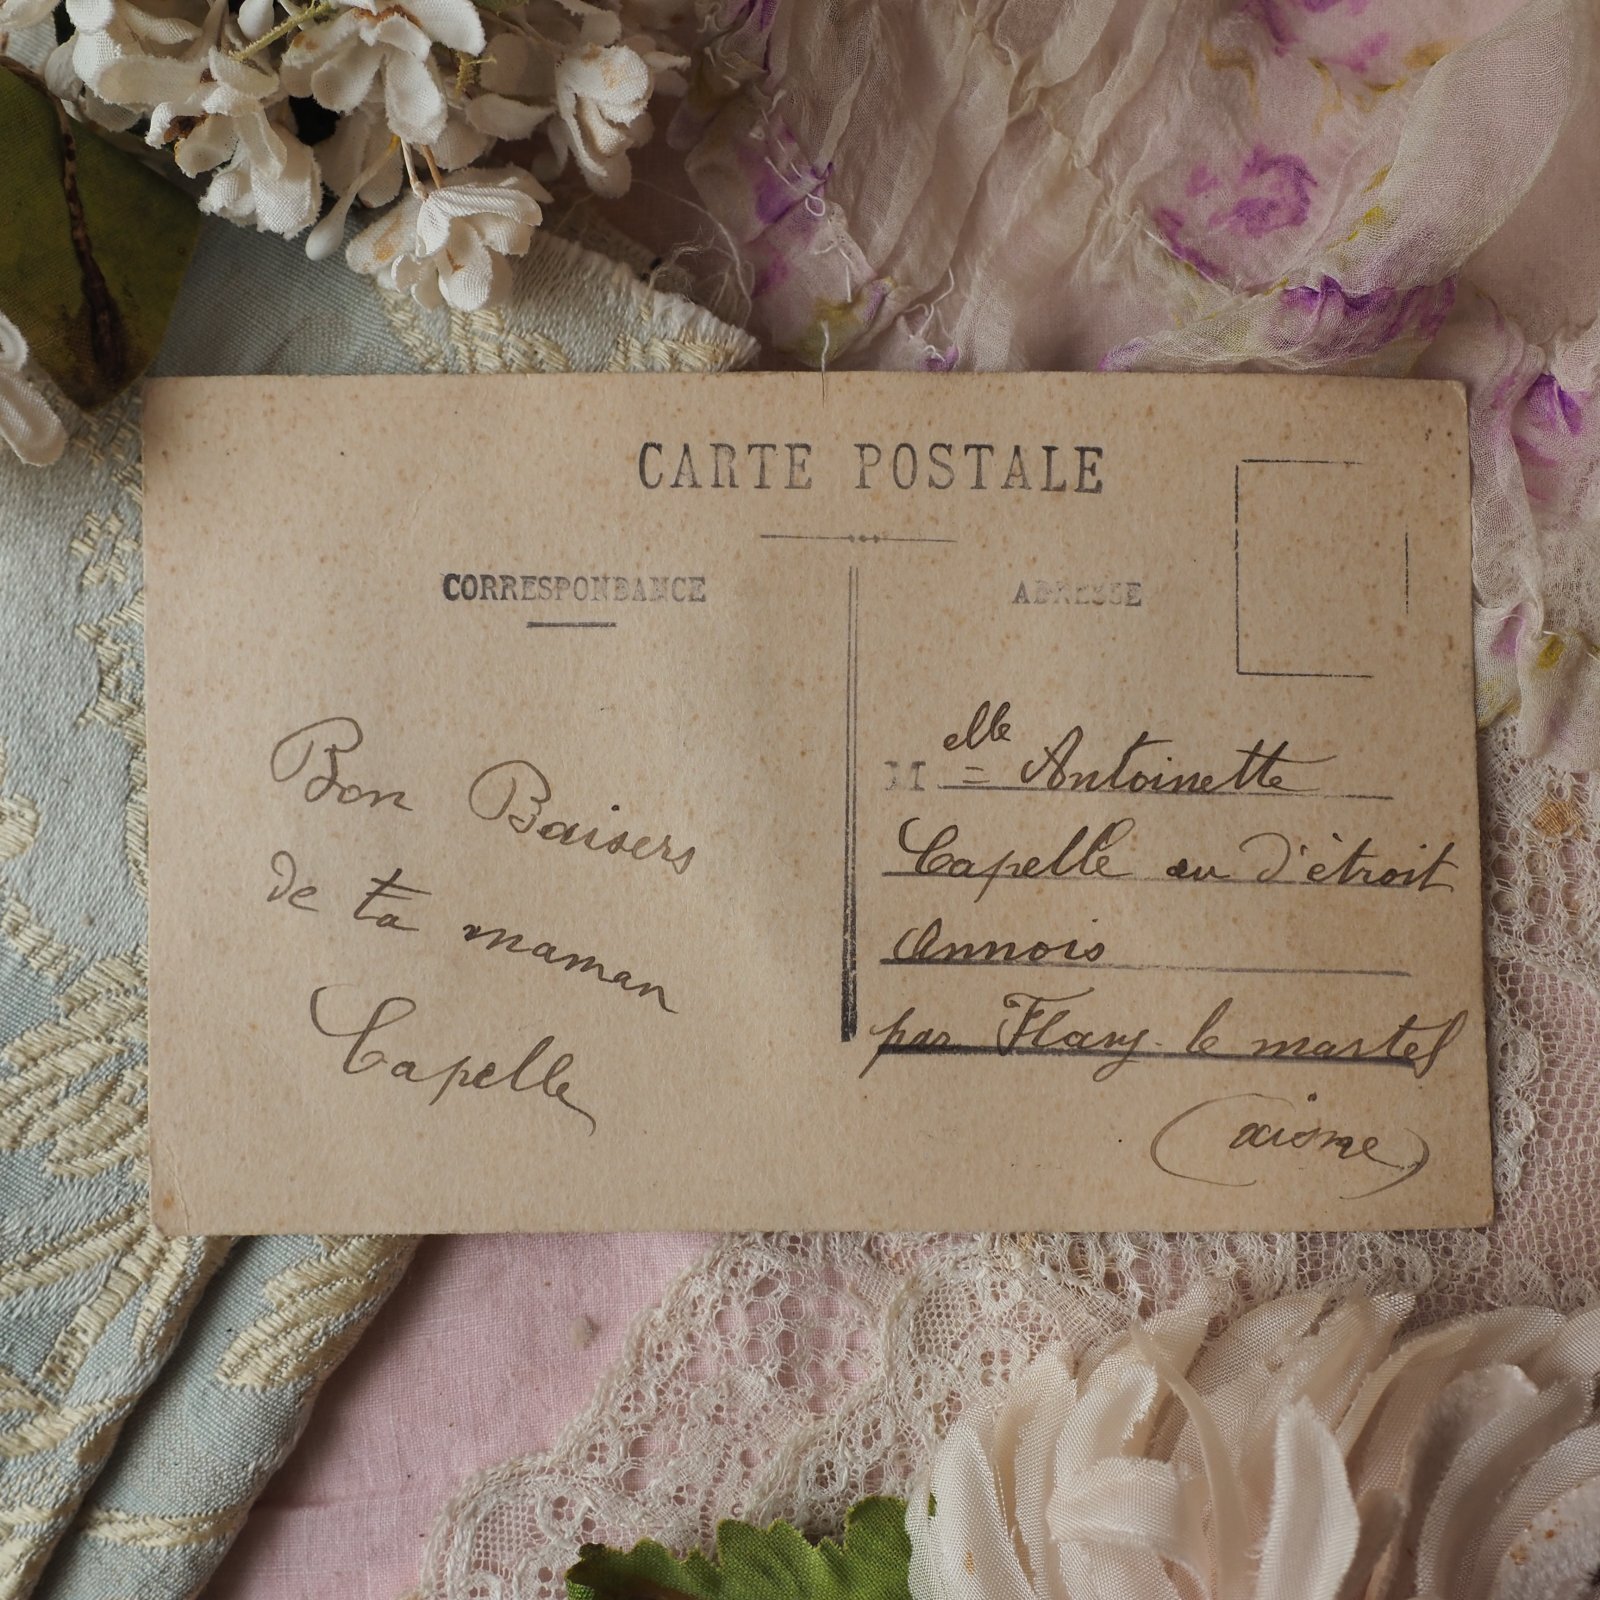 CARTE POSTALE
CORRESPONDANCE
ADRESSE
Bon Baisers
de ta maman
Capelle
Melle Antoinette
Capelle au d'étroit
Annois
par Flavy-le martel
(aisne)